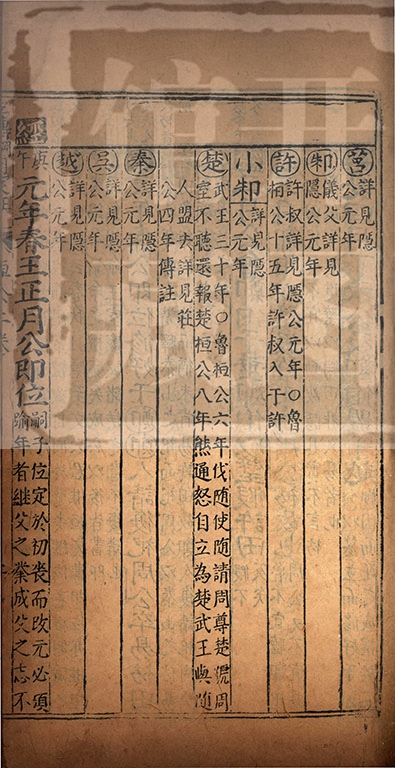 莒 詳見隱
公元年
邾 儀父詳見
隱公元年
許 許叔詳見隱公元年〇魯
桓公十五年許叔入于許
小邾 詳見隱
公元年
楚 武王三十年〇魯桓公六年伐随使随請問尊楚號周
室不聽還報楚桓公八年熊通怒自立為楚武王與随
人盟夫詳見莊
公四年傳註
秦 詳見隱
公元年
吴 詳見隱
公元年
越 詳見隱
公元年
經 庚午 元年春王正月公即位 嗣子位定於初喪而改元必須
踰年者継父之業成父之志不